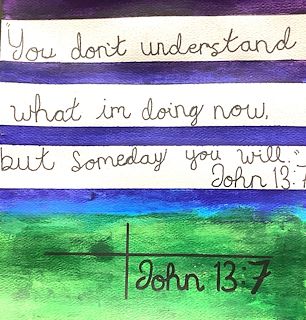 "You don't understand
what im doing now,
but someday you will."
John 13:7
John 13:7